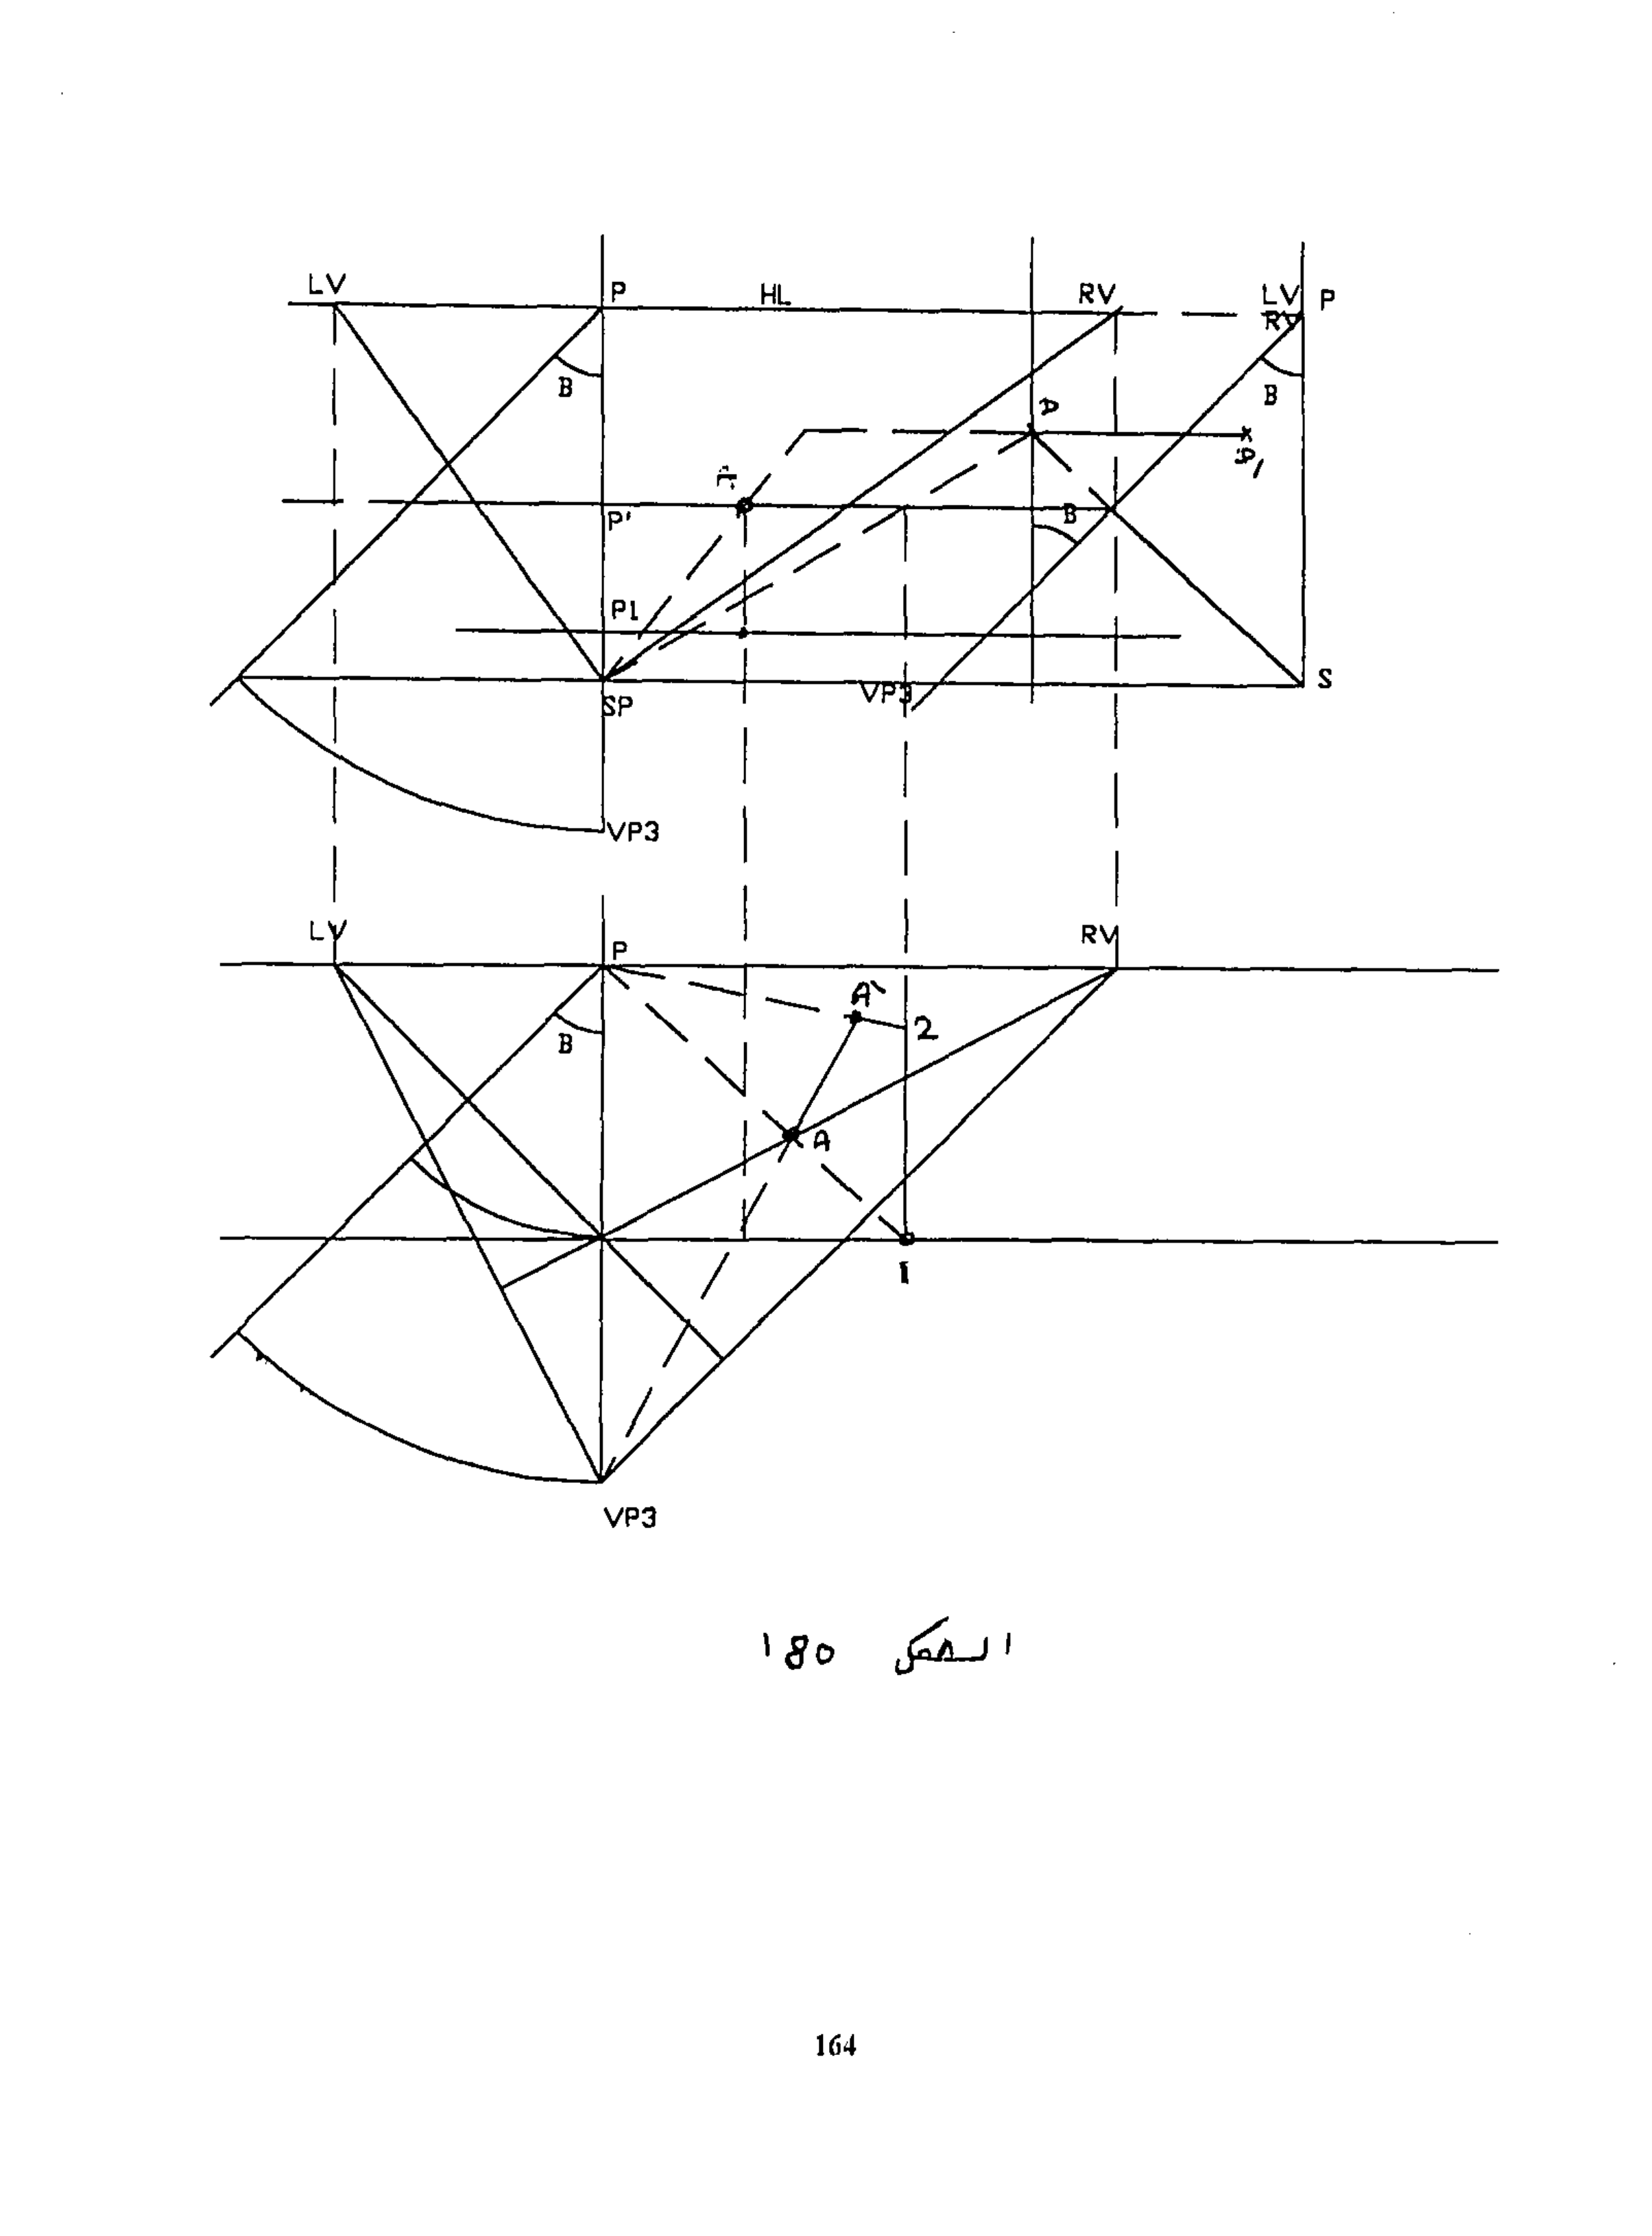 LV P HL RV LV P
RV
B B
A
P' B
P1
SP VP3 S
VP3
LV P RV
A`
B 2
A
1
VP3
الشكل 180
164